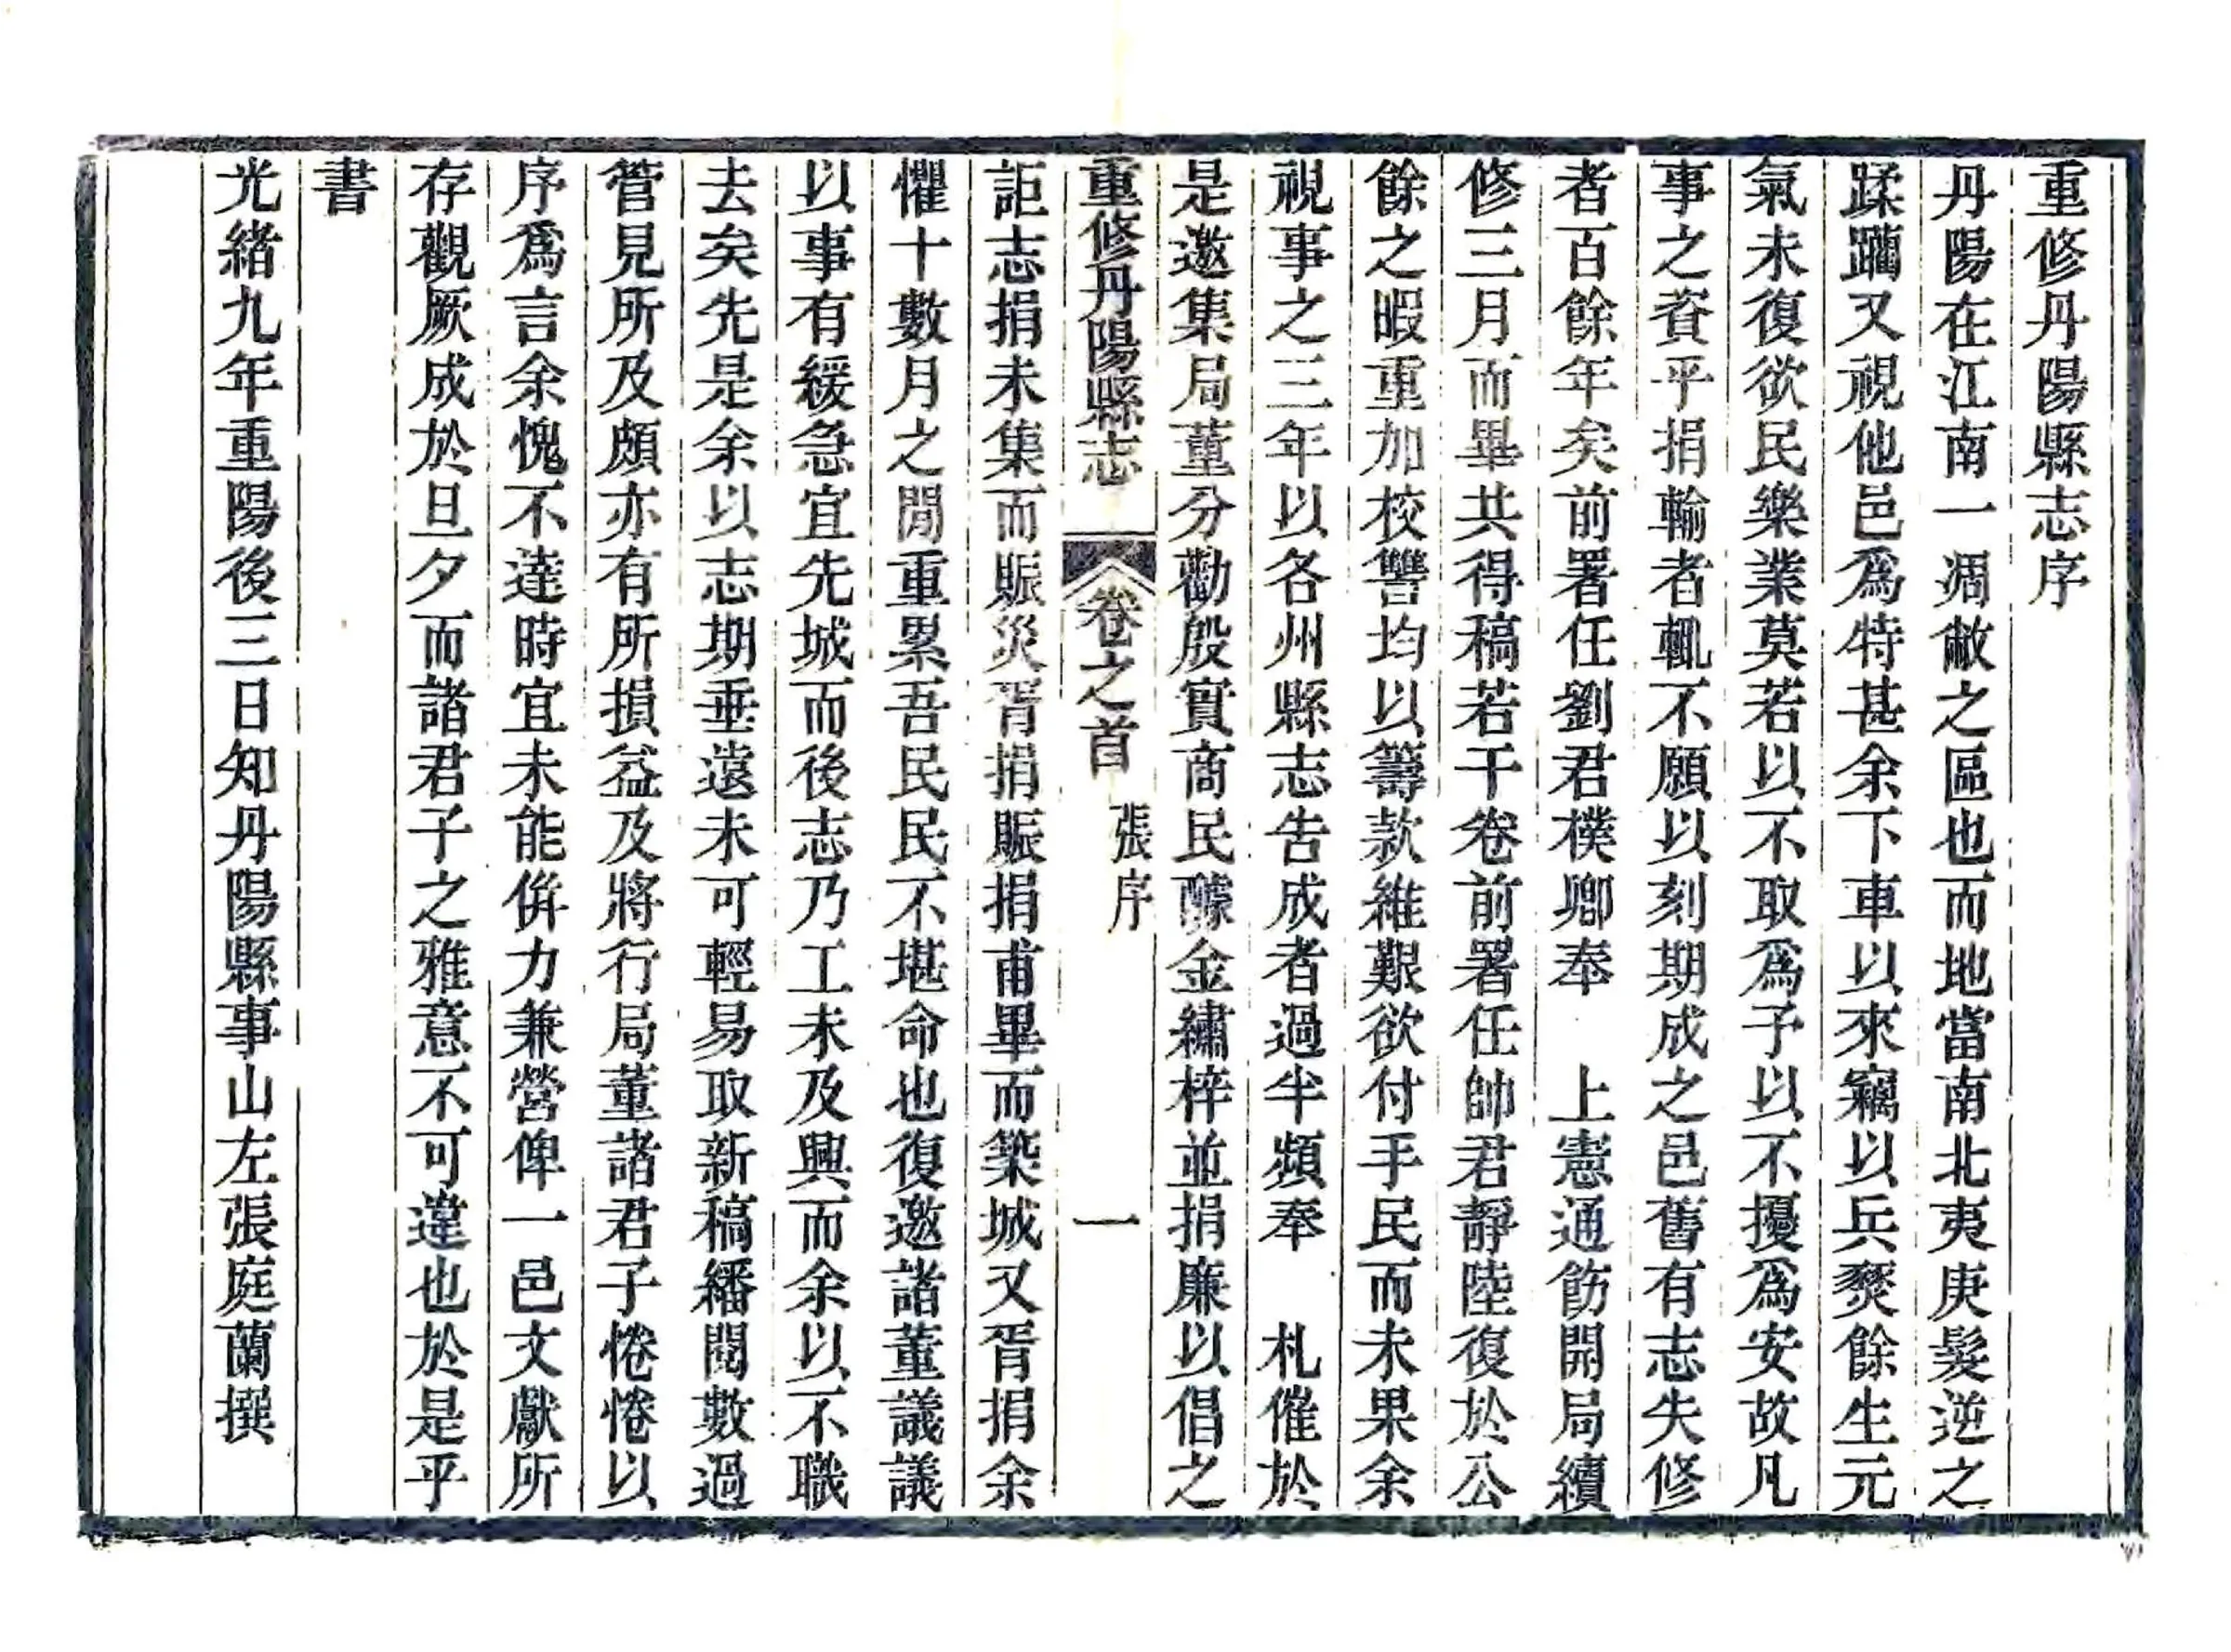 重修丹陽縣志序
丹陽在江南一凋敝之區也而地當南北夷庚髮逆之
蹂躪又視他邑爲特甚余下車以來竊以兵燹餘生元
氣未復欲民樂業莫若以不取爲予以不擾爲安故凡
事之資乎捐輸者輒不願以刻期成之邑舊有志失修
者百餘年矣前署任劉君樸卿奉　上憲通飭開局續
修三月而畢共得稿若干卷前署任帥君靜陸復於公
餘之暇重加校讐均以籌款維艱欲付手民而未果余
視事之三年以各州縣志告成者過半頻奉　札催於
是邀集局董分勸殷實商民醵金繡梓並捐廉以倡之
重修丹陽縣志　卷之首　張序　一
詎志捐未集而賑災胥捐賑捐甫畢而築城又胥捐余
懼十數月之閒重累吾民民不堪命也復邀諸董議議
以事有緩急宜先城而後志乃工未及興而余以不職
去矣先是余以志期垂遠未可輕易取新稿繙閱數過
管見所及頗亦有所損益及將行局董諸君子惓惓以
序爲言余愧不達時宜未能侔力兼營俾一邑文獻所
存觀厥成於旦夕而諸君子之雅意不可違也於是乎
書
光緒九年重陽後三日知丹陽縣事山左張庭蘭撰